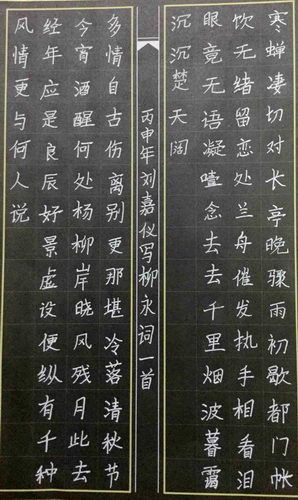 寒蝉凄切对长亭晚骤雨初歇都门帐
饮无绪留恋处兰舟催发执手相看泪
眼竟无语凝噎念去去千里烟波暮霭
沉沉楚天阔
丙申年刘嘉仪写柳永词一首
多情自古伤离别更那堪冷落清秋节
今宵酒醒何处杨柳岸晓风残月此去
经年应是良辰好景虚设便纵有千种
风情更与何人说